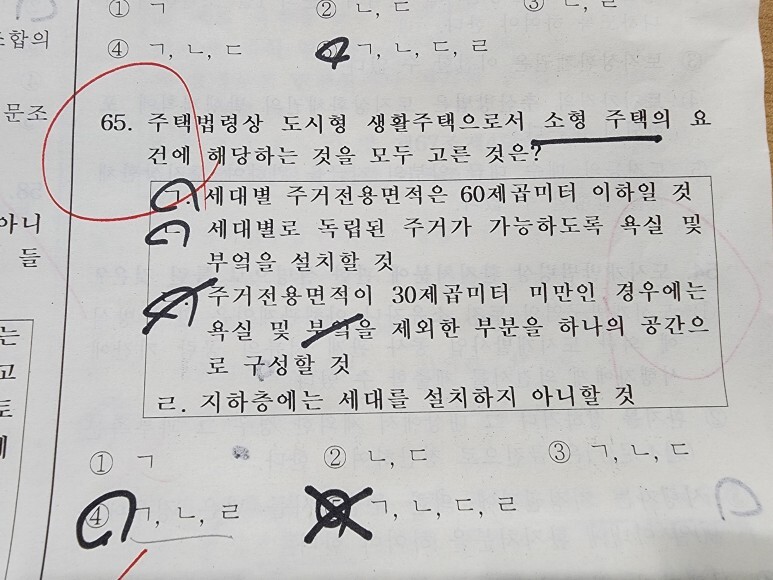 ① ㄱ ② ㄴ, ㄷ ③ ㄴ, ㄹ
조합의
④ ㄱ, ㄴ, ㄷ ㄱ, ㄴ, ㄷ, ㄹ
문조
65. 주택법령상 도시형 생활주택으로서 소형 주택의 요
건에 해당하는 것을 모두 고른 것은?
ㄱ. 세대별 주거전용면적은 60제곱미터 이하일 것
아니
세대별로 독립된 주거가 가능하도록 욕실 및
들
부엌을 설치할 것
주거전용면적이 30제곱미터 미만인 경우에는
욕실 및 부엌을 제외한 부분을 하나의 공간으
는
로 구성할 것
고
ㄹ. 지하층에는 세대를 설치하지 아니할 것
토
① ㄱ ② ㄴ, ㄷ ③ ㄱ, ㄴ, ㄷ
④ ㄱ, ㄴ, ㄹ ⑤ ㄱ, ㄴ, ㄷ, ㄹ